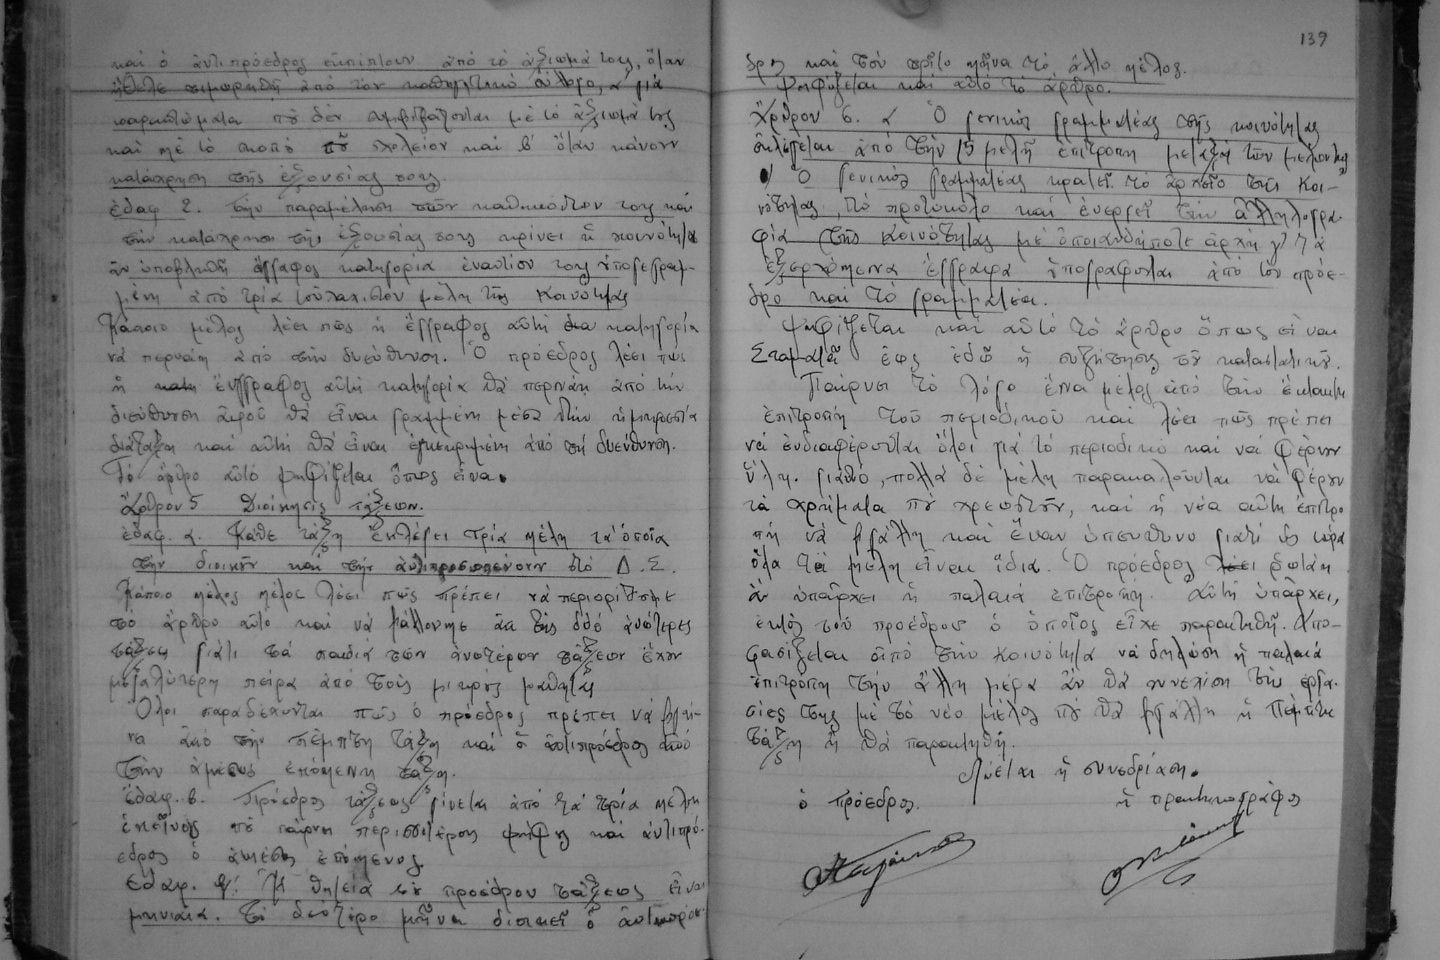 καὶ ὁ ἀντιπρόεδρος ἐκπίπτουν ἀπὸ τὸ ἀξίωμά των, ὅταν
ἤθελε τιμωρηθῆ ἀπὸ τὸν καθηγητικὸ σύλλογο, α' γιὰ
παραπτώματα ποὺ δὲν συμβιβάζονται με τὸ ἀξίωμά τους
καὶ μὲ τὸ σκοπὸ τοῦ σχολείου καὶ β' ὅταν κάνουν
κατάχρηση τῆς ἐξουσίας τους.
ἐδαφ 2. Τὴν παραμέληση τῶν καθηκόντων τους καὶ
τὴν κατάχρηση τῆς ἐξουσίας τους κρίνει ἡ κοινότητα
ἂν ὑποβληθῆ ἔγγραφος κατηγορία ἐναντίον τους ὑπογεγραμ-
μένη ἀπὸ τρία τοὐλάχιστον μέλη τῆς Κοινότητας
Κάποιο μέλος λέει πῶς ἡ ἔγγραφος αὐτὴ κατηγορία
νὰ περνάη ἀπὸ τὴν διεύθυνση. Ὁ πρόεδρος λέει πως
ἡ ἔγγραφος αὐτὴ κατηγορία θὰ περνάη ἀπὸ τὴν
διεύθυνση ἀφοῦ θὰ εἶναι γραμμένη μέσα στὴν ἡμερησία
διάταξη καὶ αὐτὴ θὰ εἶναι ἐγκεκριμένη ἀπὸ τὴ διεύθυνση.
Τὸ ἄρθρο αὐτὸ ψηφίζεται ὅπως εἶναι.
Ἄρθρον 5 Διοίκησις τάξεων.
ἐδαφ. α. Κάθε τάξη ἐκλέγει τρία μέλη τὰ ὁποῖα
τὴν διοικοῦν καὶ τὴν ἀντιπροσωπεύουν στὸ Δ.Σ.
Κάποιο μέλος μέλος λέει πῶς πρέπει νὰ περιορίσωμε
τὸ ἄρθρο αὐτὸ καὶ νὰ βάλλουμε ἀπ τὶς δύο ἀνώτερες
τάξεις γιατὶ τὰ παιδιὰ τῶν ἀνωτέρων τάξεων ἔχουν
μεγαλύτερη πεῖρα ἀπὸ τοὺς μικροὺς μαθητάς
Ὅλοι παραδέχονται πῶς ὁ πρόεδρος πρέπει νὰ βγαί-
νη ἀπὸ τὴν πέμπτη τάξη καὶ ὁ ἀντιπρόεδρος ἀπὸ
τὴν ἀμέσως ἑπόμενη τάξη.
ἐδαφ. β. Πρόεδρος τάξεως γίνεται ἀπὸ τὰ τρία μέλη
ἐκεῖνος ποὺ παίρνει περισσότερους ψήφους καὶ ἀντιπρό-
εδρος ὁ ἀμέσως ἑπόμενος
Εδαφ. γ'. Ἡ θητεία τοῦ προέδρου τάξεως εἶναι
μηνιαία. Τὸ δεύτερο μῆνα διοικεῖ ὁ ἀντιπρόε-
139
δρος καὶ τὸν τρίτο μῆνα τὸ ἄλλο μέλος.
Ψηφίζεται καὶ αὐτὸ τὸ ἄρθρο.
Ἄρθρον 6. α Ὁ γενικὸς γραμματέας τῆς κοινότητας
ἐκλέγεται ἀπὸ τὴν 15μελῆ ἐπιτροπὴ μεταξὺ τῶν μελῶν της
Ὁ Γενικὸς γραμματέας κρατεῖ τὸ ἀρχεῖο τῆς Κοι-
νότητας, τὸ πρωτόκολο καὶ ἐνεργεῖ τὴν ἀλληλογρα-
φία τῆς Κοινότητας μὲ ὁποιανδήποτε ἀρχὴ γ' Τὰ
ἐξερχόμενα ἔγγραφα ὑπογράφονται ἀπὸ τὸν πρόε-
δρο καὶ τὸ γραμματέα.
Ψηφίζεται καὶ αὐτὸ τὸ ἄρθρο ὅπως εἶναι
Σταματᾶ ἕως ἐδῶ ἡ συζήτησις τοῦ καταστατικοῦ.
Παίρνει τὸ λόγο ἕνα μέλος ἀπὸ τὴν ἔκτακτη
ἐπιτροπὴ τοῦ περιοδικοῦ καὶ λέει πῶς πρέπει
νὰ ἐνδιαφέρονται ὅλοι γιὰ τὸ περιοδικὸ καὶ νὰ φέρουν
ὕλη. γιαυτό, πολλὰ δὲ μέλη παρακαλοῦνται νὰ φέρουν
τὰ χρήματα ποὺ χρεωστοῦν, καὶ ἡ νέα αὐτὴ ἐπιτρο
πὴ νὰ βγάλλη καὶ ἕναν ὑπεύθυνο γιατὶ ὣς τώρα
ὅλα τὰ μέλη εἶναι ἴδια. Ὁ πρόεδρος ρωτάη
ἂν ὑπάρχει ἡ παλαιὰ ἐπιτροπή. Αὐτὴ ὑπάρχει,
ἐκτὸς τοῦ προέδρου ὁ ὁποῖος εἶχε παραιτηθῆ. Ἀπο-
φασίζεται ἀπὸ τὴν κοινότητα νὰ δηλώση ἡ παλαιὰ
ἐπιτροπὴ τὴν ἄλλη μέρα ἂν θὰ συνεχίση τὶς ἐργα-
σίες της μὲ τὸ νέο μέλος ποὺ θὰ βγάλλη ἡ Πέμπτη
τάξη ἢ θὰ παραιτηθῆ.
Λύεται ἡ συνεδρίαση.
ὁ πρόεδρος. ἡ πρακτικογράφος